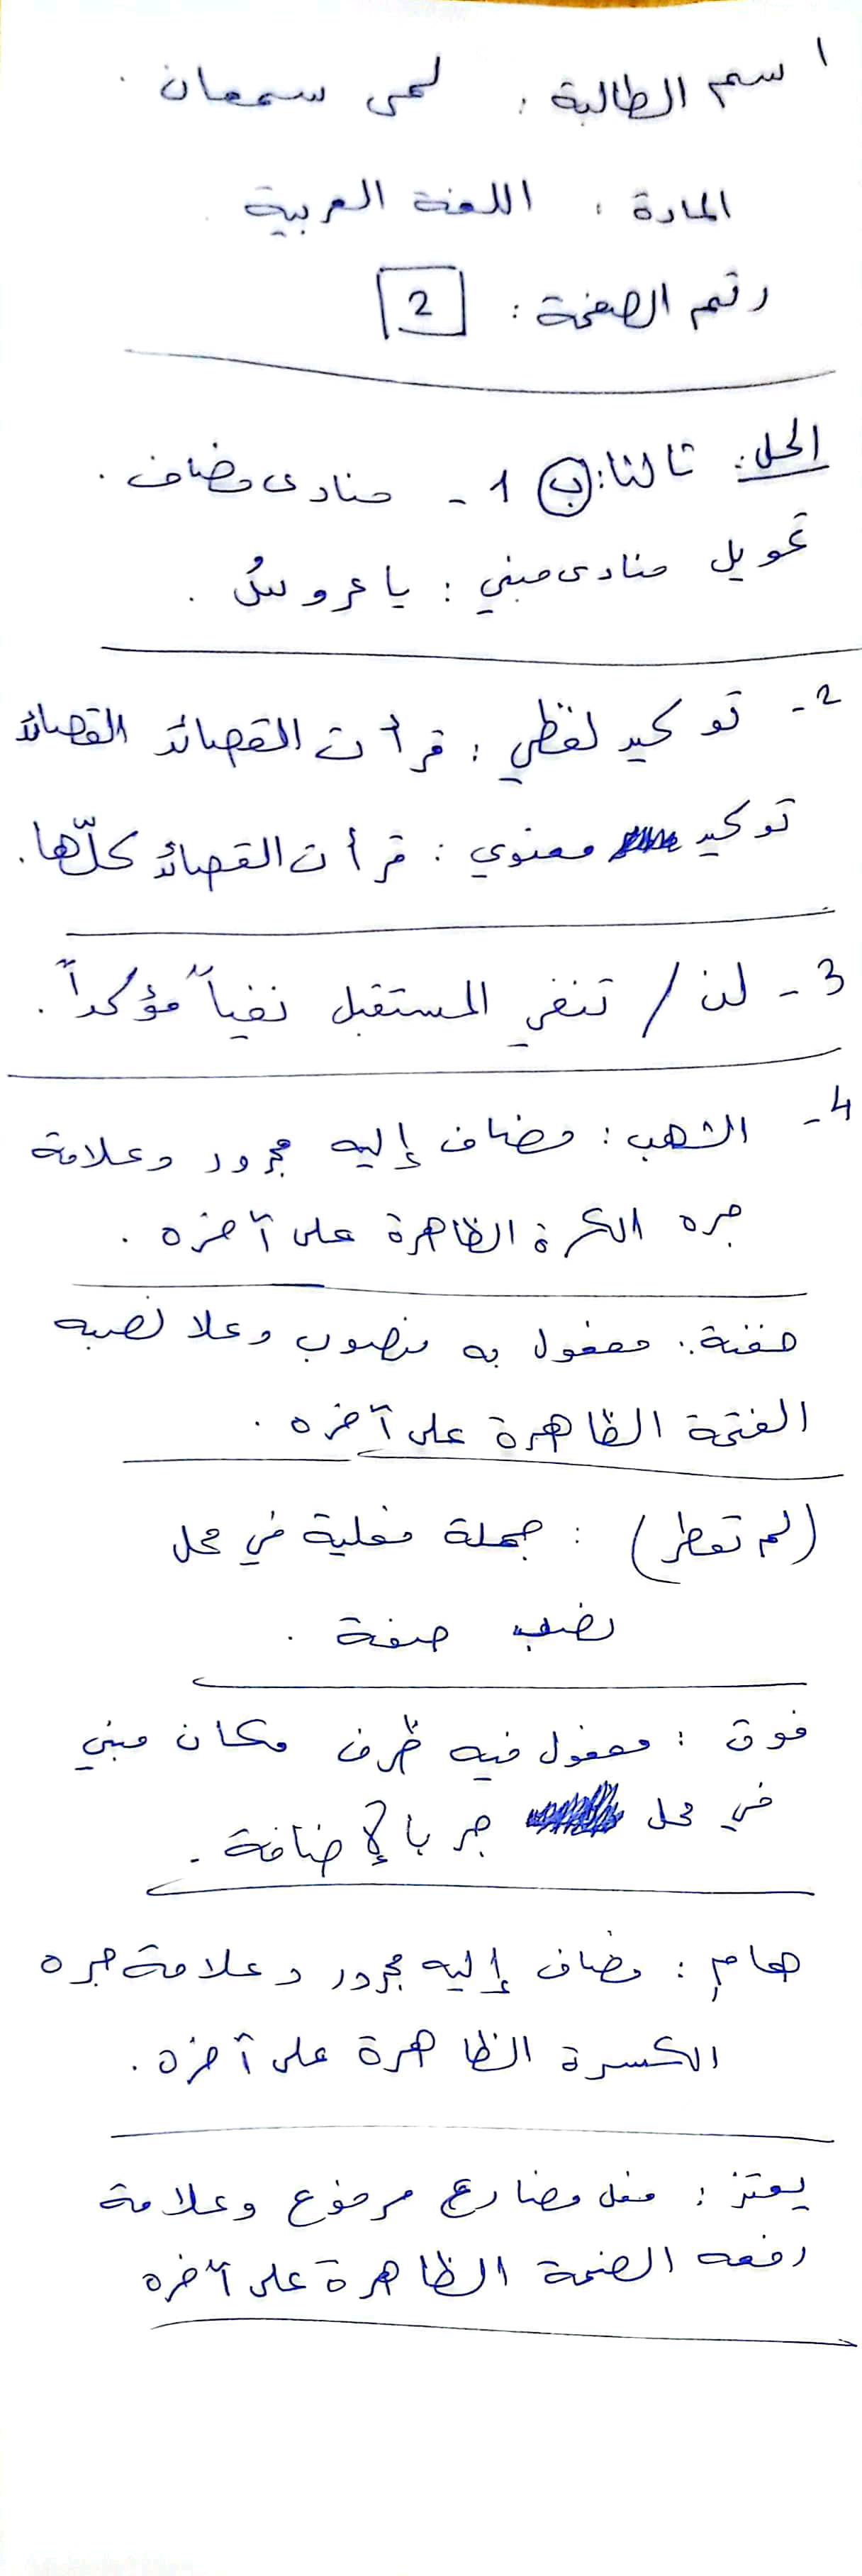 اسم الطالبة : لمى سمعان .
المادة : اللغة العربية .
رقم الصفحة : 2
الحل : ثالثا : ب 1 - منادى مضاف .
تحويل منادى مبني : يا عروسُ .
2 - توكيد لفظي : قرأت القصائد القصائد
توكيد معنوي : قرأت القصائد كلّها .
3 - لن / تنفي المستقبل نفياً مؤكداً .
4 - الشهب : مضاف إليه مجرور وعلامة
جره الكسرة الظاهرة على آخره .
حفنة : مفعول به منصوب وعلا نصبه
الفتحة الظاهرة على آخره .
(لم تعطر) : جملة فعلية في محل
نصب صفة .
فوق : مفعول فيه ظرف مكان مبني
في محل جر بالإضافة .
هام : مضاف إليه مجرور وعلامة جره
الكسرة الظاهرة على آخره .
يعتز : فعل مضارع مرفوع وعلامة
رفعه الضمة الظاهرة على آخره